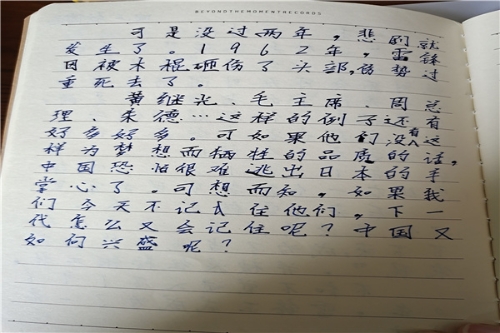 BEYONDTHEMOMENTRECORDS
可是没过两年，悲剧就
发生了。1962年，雷锋
因被木棍砸伤了头部，伤势过
重死去了。
黄继光、毛主席、周总
理、朱德…这样的例子还有
好多好多。可如果他们没有这
样为梦想而牺牲的品质的话，
中国恐怕很难逃出日本的手
掌心了。可想而知，如果我
们今天不记住他们，下一
代怎么又会记住呢？中国又
如何兴盛呢？